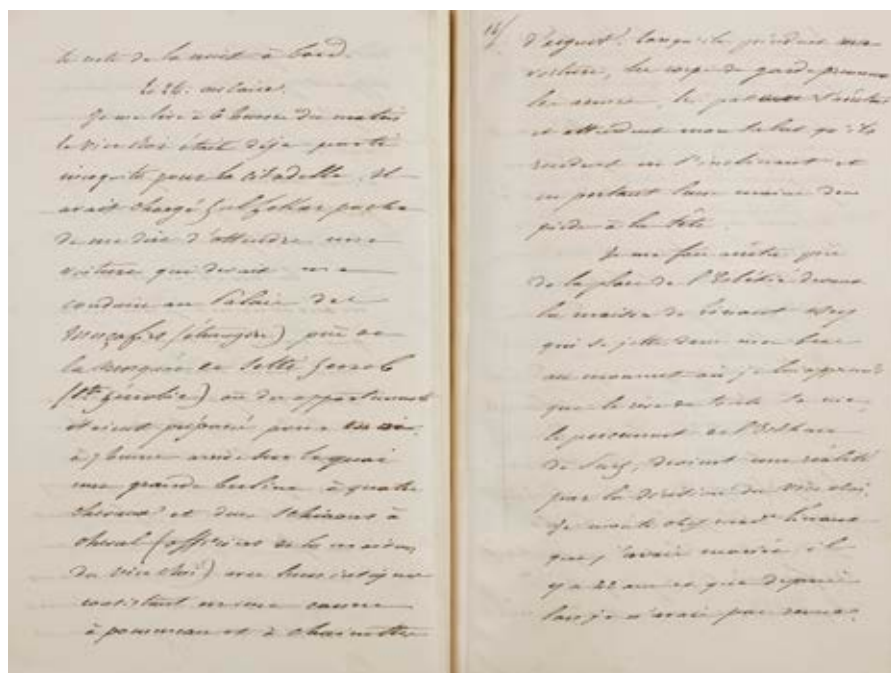 le reste de la nuit à bord.
Le 26:
Je me lève à 6 heures du matin
le vice-roi était déjà parti
pour la citadelle. Il
avait chargé Zulfekar pacha
de me dire d'attendre une
voiture qui devait me
conduire au Palais des
Mozafirs (étrangers), près de
la mosquée de Setté Zeneb
(Ste Zénobie) où des appartements
étaient préparés pour
à 7 heures arrive sur le quai
une grande berline à quatre
chevaux et deux à
cheval (officiers de la maison
du vice Roi) avec leurs insignes
consistant une canne
à pommeau et à chainettes
14/
d'argent. lorsqu'ils
voiture, les corps de garde prennent
les armes, les s'arrêtent
et attendent mon salut qu'ils
rendent en s'inclinant et
en portant leur main des
pieds à la tête.
Je me fais arrêter près
de la place de l'Esbékié devant
la maison de Linant Bey
qui se jette dans mes bras
au moment où je lui apprends
que le rêve de toute sa vie,
le percement de l'Isthme
de Suez, devient une réalité
par la décision du Vice Roi.
Je monte chez made Linant
que j'avais mariée il
y a 22 ans et que depuis
lors je n'avais pas revue.